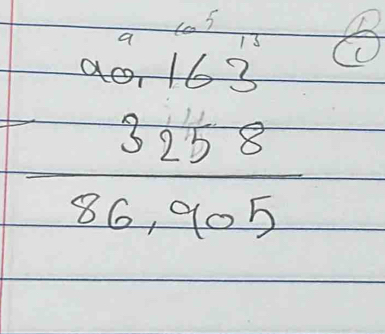 9 10 5 13
90,163
- 3258
86,905